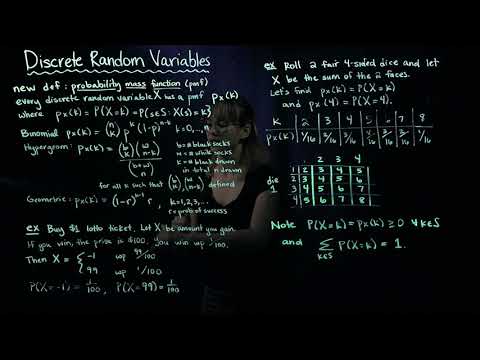 Discrete Random Variables
new def: probability mass function (pmf)
every discrete random variable X has a pmf pX(k)
where pX(k) = P(X=k) = P({s∈S: X(s)=k})
Binomial pX(k) = (n k) p^k (1-p)^n-k k=0,...,n
Hypergeom: pX(k) = (b k)(w n-k) / (b+w n)
b = # black socks
w = # white socks
k = # black drawn
in total n drawn
for all k such that (b k), (w n-k) defined
Geometric: pX(k) = (1-r)^k-1 r, k=1,2,3,...
r = prob of success
ex Buy $1 lotto ticket. Let X be amount you gain.
If you win, the prize is $100. You win wp 1/100.
Then X = { -1 wp 99/100
99 wp 1/100
P(X=-1) = 1/100, P(X=99) = 1/100
ex Roll 2 fair 4-sided dice and let
X be the sum of the 2 faces.
Let's find pX(k) = P(X=k)
and pX(4) = P(X=4).
k 2 3 4 5 6 7 8
pX(k) 1/16 2/16 3/16 4/16 3/16 2/16 1/16
2 3 4
die 1
1 2 3 4 5
2 3 4 5 6
3 4 5 6 7
4 5 6 7 8
Note P(X=k) = pX(k) ≥ 0 ∀ k∈S
and Σ k∈S P(X=k) = 1.